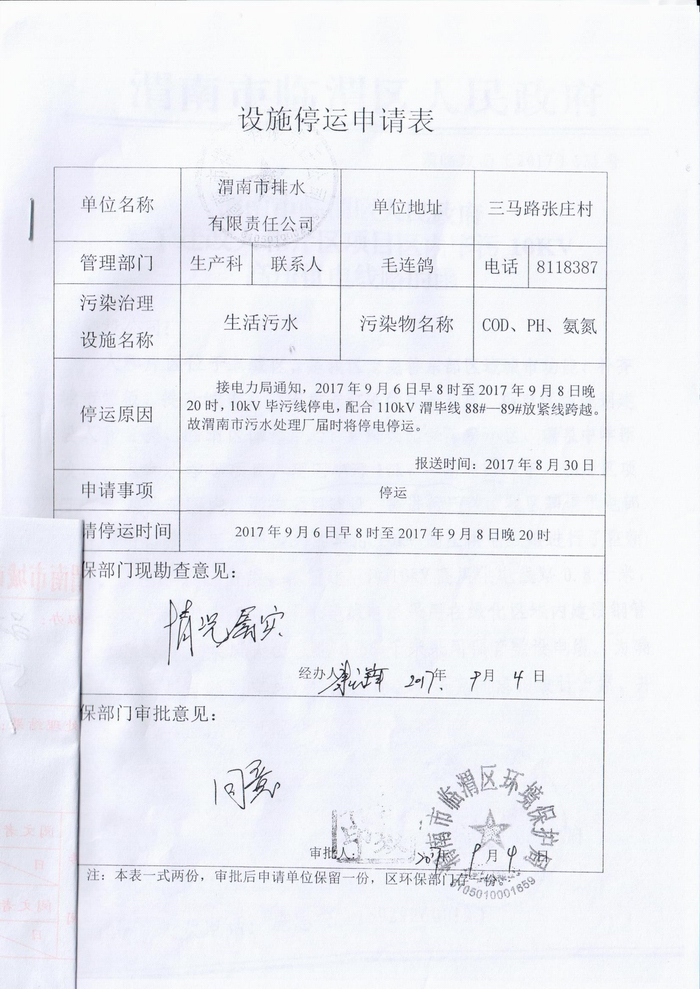 设施停运申请表
单位名称 渭南市排水有限责任公司 单位地址 三马路张庄村
管理部门 生产科 联系人 毛连鸽 电话 8118387
污染治理设施名称 生活污水 污染物名称 COD、PH、氨氮
停运原因
接电力局通知，2017年9月6日早8时至2017年9月8日晚
20时，10kV毕污线停电，配合110kV渭毕线88#—89#放紧线跨越。
故渭南市污水处理厂届时将停电停运。
报送时间：2017年8月30日
申请事项 停运
请停运时间 2017年9月6日早8时至2017年9月8日晚20时
保部门现勘查意见：
情况属实
经办人 2017年 9月4日
保部门审批意见：
同意
渭南市临渭区环境保护局
审批人 2017 9月4日
注：本表一式两份，审批后申请单位保留一份，区环保部门存一份。